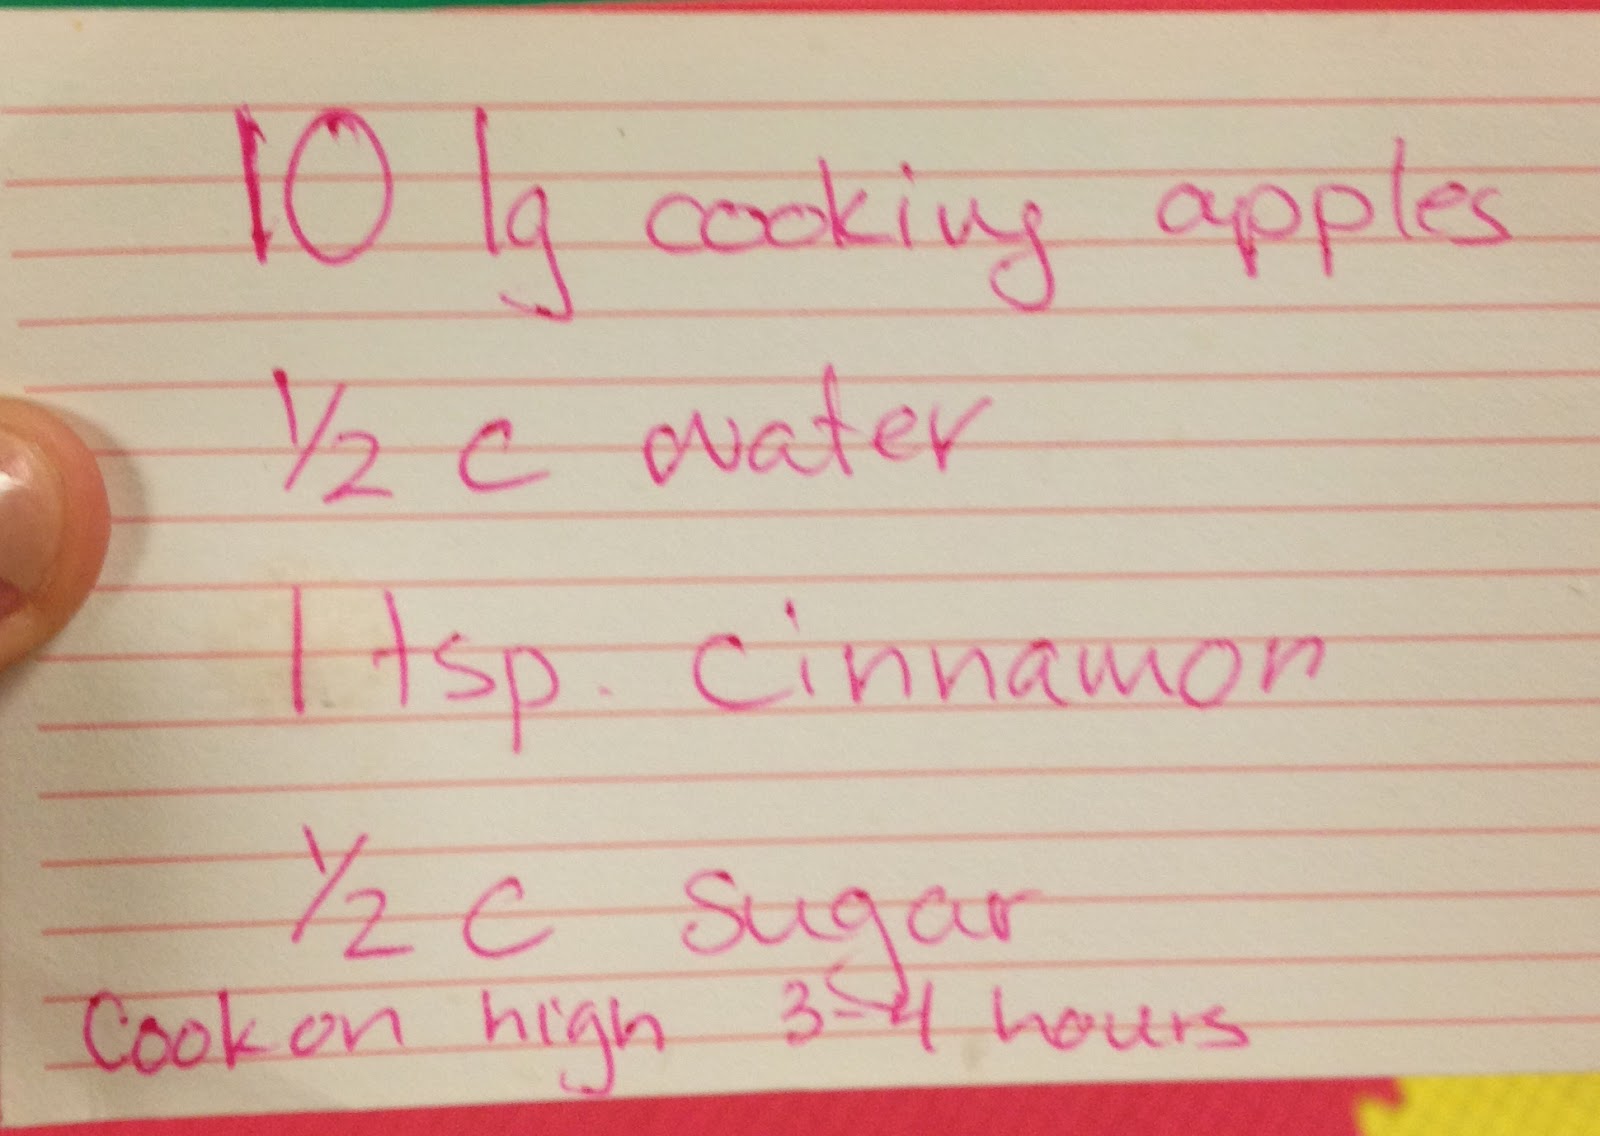 10 lg cooking apples
1/2 c water
1 tsp. cinnamon
1/2 c sugar
Cook on high 3-4 hours